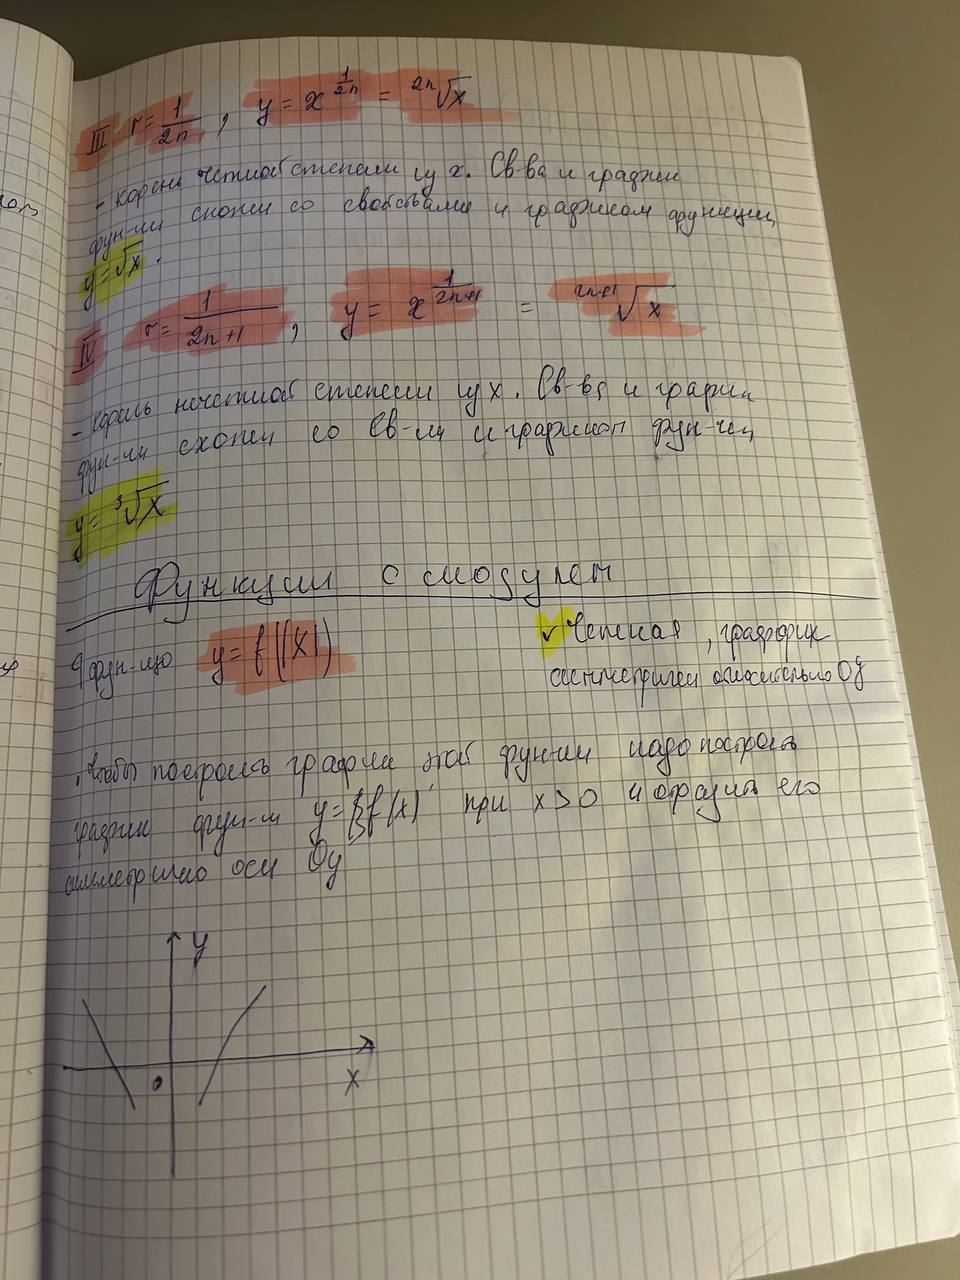 III r = 1/2n , y = x^(1/2n) = ²ⁿ√x
- корень четной степени из x. Св-ва и график
фун-ии схожи со свойствами и графиком функции
y = √x .
IV r = 1/(2n+1) , y = x^(1/(2n+1)) = ²ⁿ⁺¹√x
- корень нечетной степени из x. Св-ва и график
фун-ии схожи со св-ми и графиком фун-ции
y = ³√x
Функции с модулем
фун-цию y = f(|x|)
✓ Четная , график
симметричен относительно Oy
Чтобы построить график этой фун-ии надо построить
график фун-и y = f(x) при x > 0 и отразить его
симметрично оси Oy
y
0
x